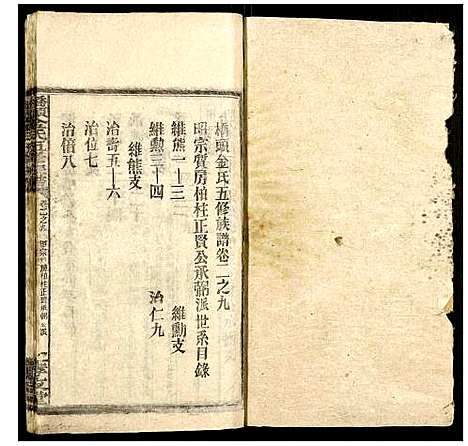 橋頭金氏五修族譜卷二之九
昭宗質房柏柱正賢公承弼派世系目錄
維熊一—三
維勳三—四
維熊支
治奇五—六
治位七
治倍八
維勳支
治仁九